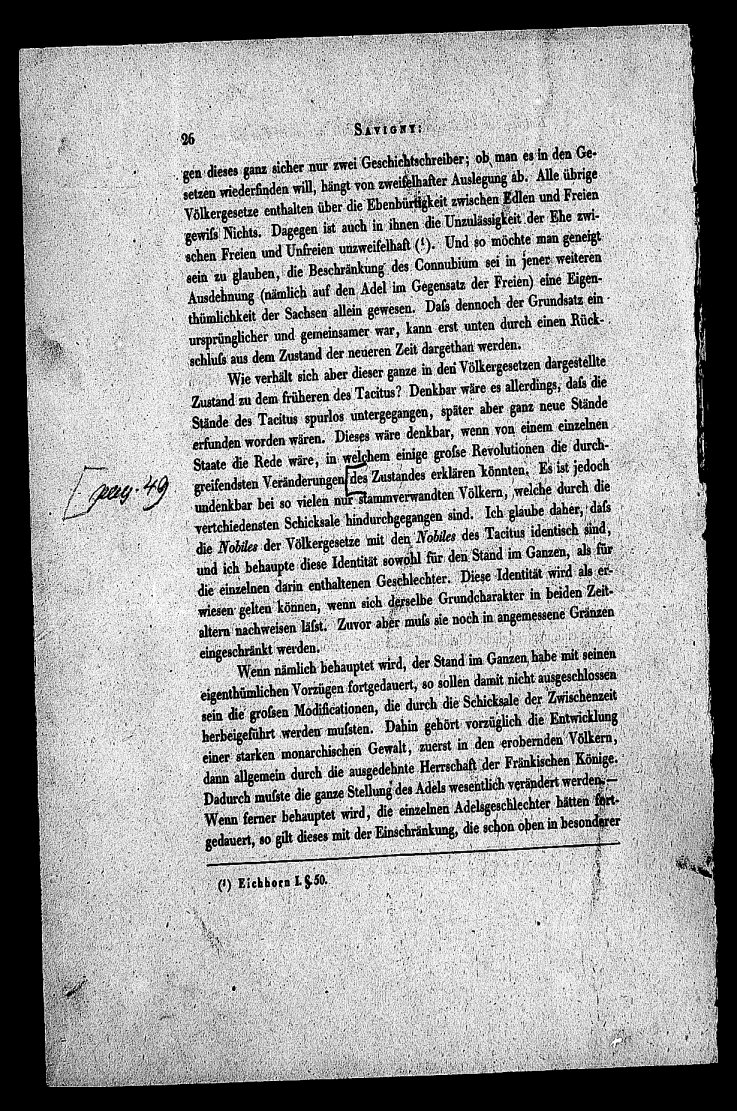 26
SAVIGNY:
gen dieses ganz sicher nur zwei Geschichtschreiber; ob man es in den Ge-
setzen wiederfinden will, hängt von zweifelhafter Auslegung ab. Alle übrige
Völkergesetze enthalten über die Ebenbürtigkeit zwischen Edlen und Freien
gewifs Nichts. Dagegen ist auch in ihnen die Unzulässigkeit der Ehe zwi-
schen Freien und Unfreien unzweifelhaft (¹). Und so möchte man geneigt
sein zu glauben, die Beschränkung des Connubium sei in jener weiteren
Ausdehnung (nämlich auf den Adel im Gegensatz der Freien) eine Eigen-
thümlichkeit der Sachsen allein gewesen. Dafs dennoch der Grundsatz ein
ursprünglicher und gemeinsamer war, kann erst unten durch einen Rück-
schlufs aus dem Zustand der neueren Zeit dargethan werden.
Wie verhält sich aber dieser ganze in den Völkergesetzen dargestellte
Zustand zu dem früheren des Tacitus? Denkbar wäre es allerdings, dafs die
Stände des Tacitus spurlos untergegangen, später aber ganz neue Stände
erfunden worden wären. Dieses wäre denkbar, wenn von einem einzelnen
Staate die Rede wäre, in welchem einige grofse Revolutionen die durch-
greifendsten Veränderungen [des Zustandes erklären könnten. Es ist jedoch
undenkbar bei so vielen nur stammverwandten Völkern, welche durch die
vertchiedensten Schicksale hindurchgegangen sind. Ich glaube daher, dafs
die Nobiles der Völkergesetze mit den Nobiles des Tacitus identisch sind,
und ich behaupte diese Identität sowohl für den Stand im Ganzen, als für
die einzelnen darin enthaltenen Geschlechter. Diese Identität wird als er-
wiesen gelten können, wenn sich derselbe Grundcharakter in beiden Zeit-
altern nachweisen läfst. Zuvor aber mufs sie noch in angemessene Gränzen
eingeschränkt werden.
Wenn nämlich behauptet wird, der Stand im Ganzen habe mit seinen
eigenthümlichen Vorzügen fortgedauert, so sollen damit nicht ausgeschlossen
sein die grofsen Modificationen, die durch die Schicksale der Zwischenzeit
herbeigeführt werden mufsten. Dahin gehört vorzüglich die Entwicklung
einer starken monarchischen Gewalt, zuerst in den erobernden Völkern,
dann allgemein durch die ausgedehnte Herrschaft der Fränkischen Könige.
Dadurch mufste die ganze Stellung des Adels wesentlich verändert werden. —
Wenn ferner behauptet wird, die einzelnen Adelsgeschlechter hätten fort-
gedauert, so gilt dieses mit der Einschränkung, die schon oben in besonderer
(¹) Eichhorn I. §. 50.
[pag. 49